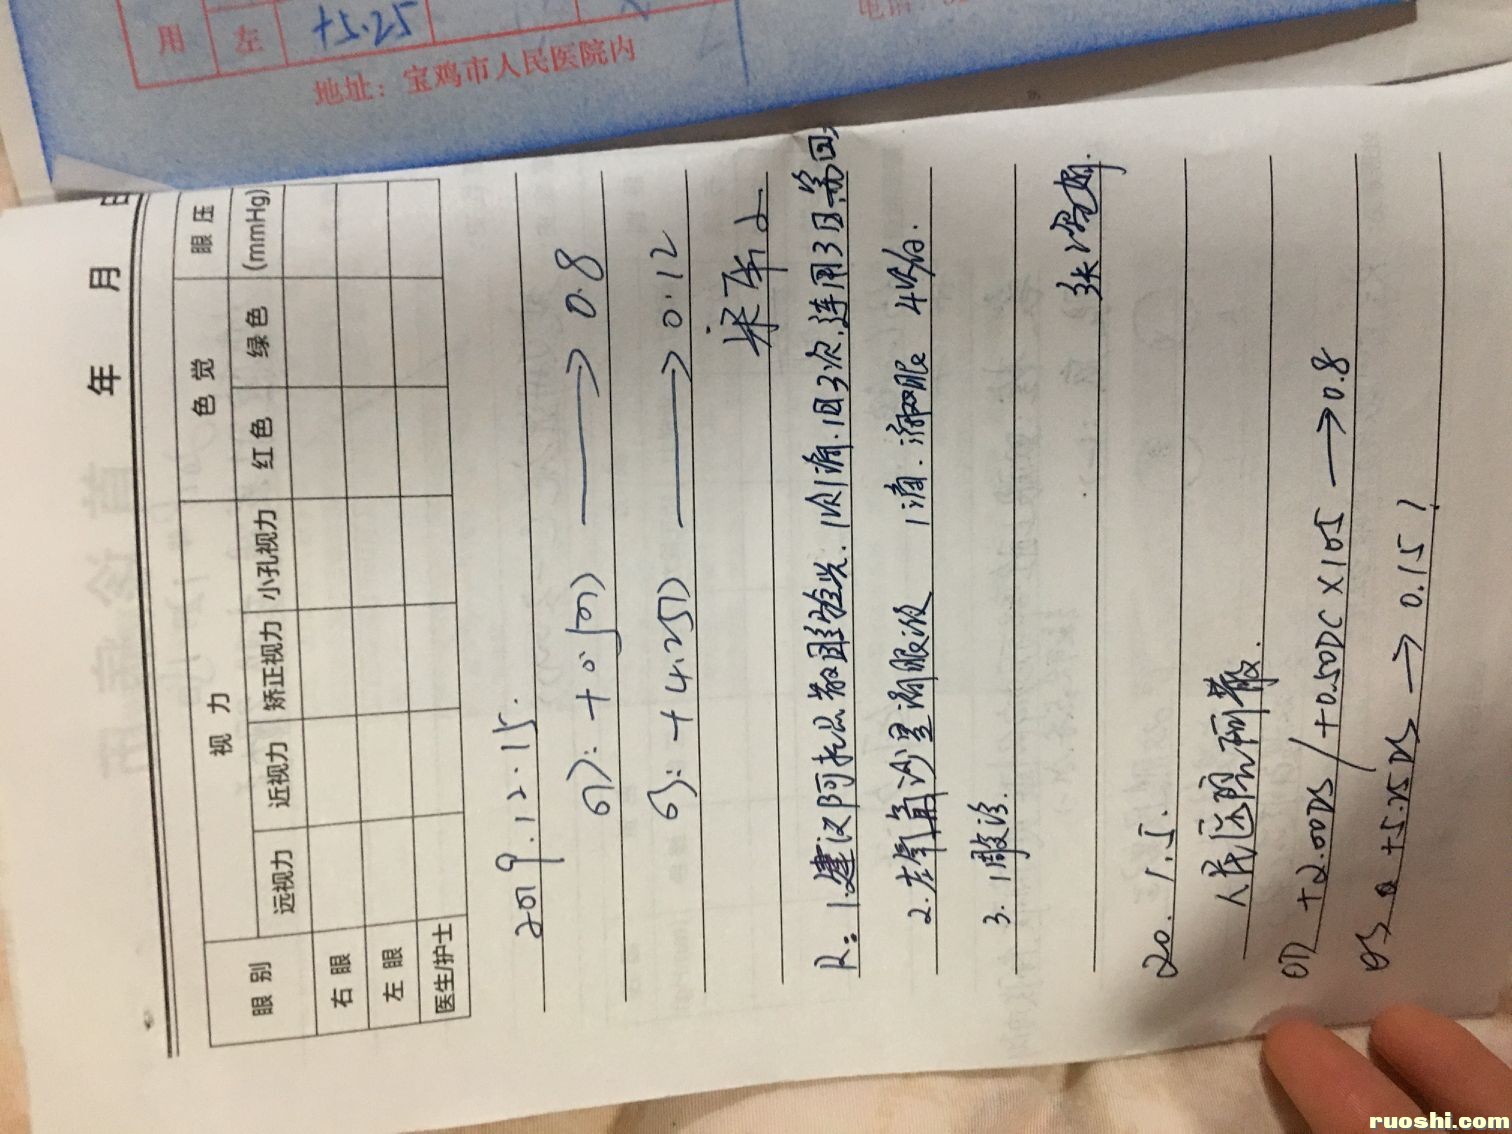 用 左 +5.25
地址：宝鸡市人民医院内
年 月 日
眼别 视力 色觉 眼压
远视力 近视力 矫正视力 小孔视力 红色 绿色 (mmHg)
右眼
左眼
医生/护士
2019.12.15.
→ 0.8
→ 0.12
R: 1.建议阿托品散瞳验光. 1次1滴. 1日3次. 连用3日
2.左氧氟沙星滴眼液 1滴. 滴双眼 4次/日.
3. 1散诊.
20.1.5.
人民医院阿散.
OD +2.00DS/+0.50DC×105 → 0.8
OS +5.25DS → 0.15
ruoshi.com